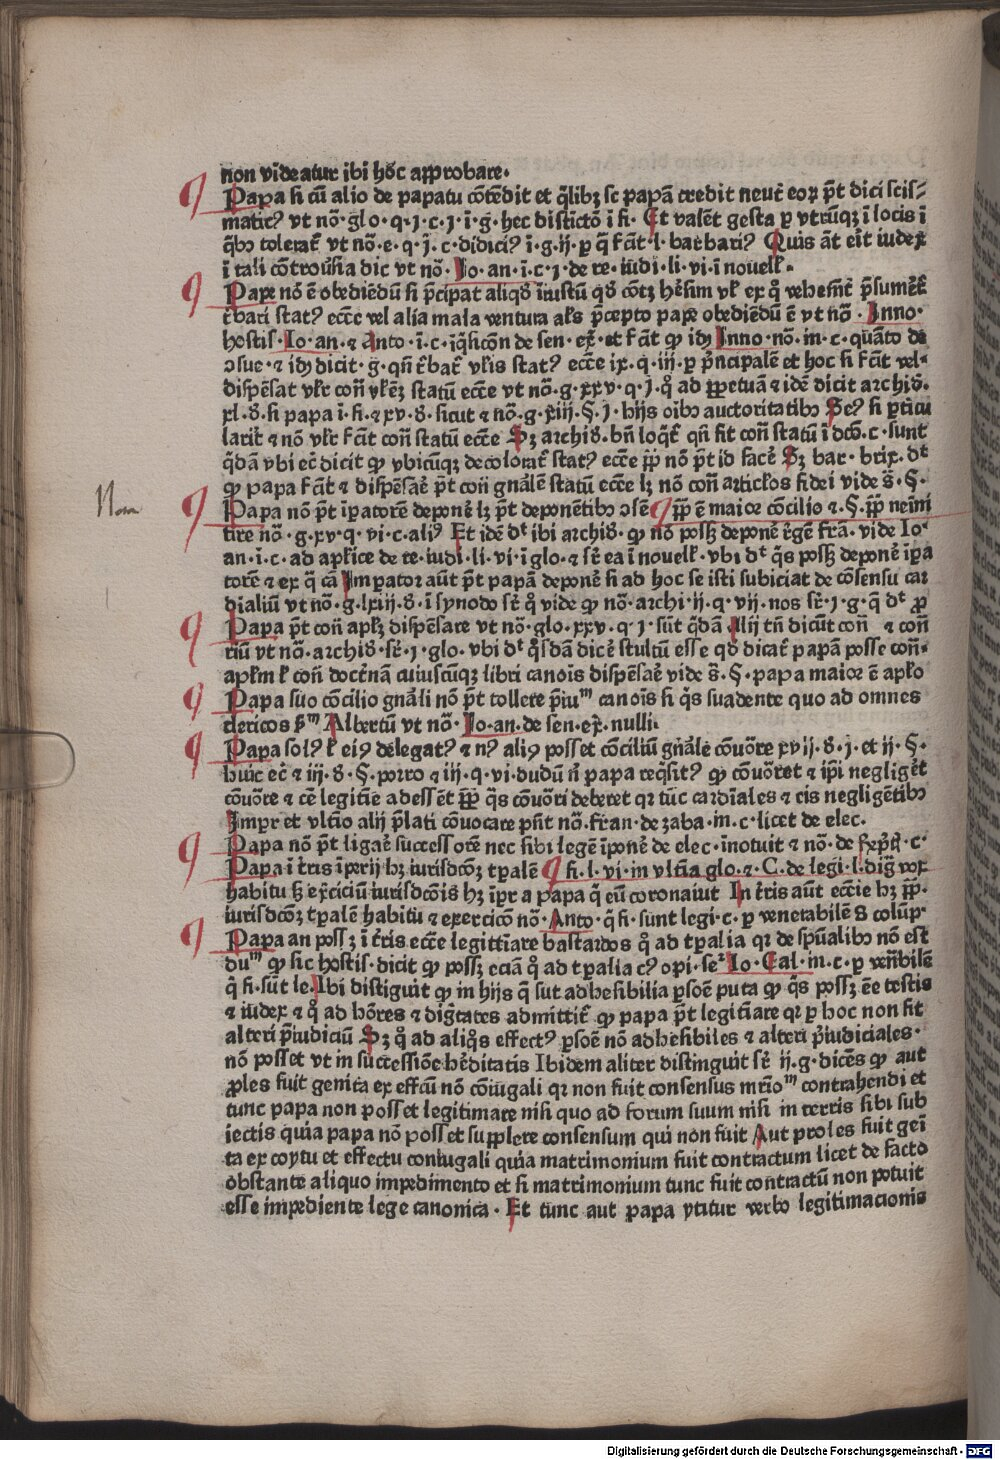 non videatur ibi hoc approbare.
Papa si cū alio de papatu cōtēdit et q̄libꝫ se papā credit neut̄ eoꝝ p̄t dici scis-
matic⁹ vt nō. glo. q. j. c. j. ī. g. hec distictō ī fi. Et valēt gesta ꝑ vtrūqꝫ ī locis ī
q̄bo tolerat̄ vt nō. e. q. j. c. didici⁹ ī. g. ij. ꝑ q̄ f̄cit l. barbari⁹ Quis āt eit iudex
ī tali cōtrou̕sia dic vt nō. Io. an. ī. c. j. de re. iudi. li. vi. ī nouell̕.
Pape nō ē obediēdū si p̄cipat aliqd̕
t̄bari stat⁹ eccē vel alia mala ventura al̕s p̄cepto pape obediēdū ē vt nō. Inno.
hostis. Io. an. ⁊ Anto. ī. c. īq̄sicōn de sen. ex̄. et f̄cit ꝙ idꝫ Inno. nō. in. c. quāto de
ↄsue. ⁊ idꝫ dicit. g. qn̄ t̄bat̄ vl̕is stat⁹ eccē ix. q. iij. ꝑ p̄ncipalē et hoc si f̄cit vel
dispēsat vl̕r con̄ vl̕eꝫ statū eccē vt nō. g. xxv. q. j. q̄ ad ꝑpetuā ⁊ idē dicit archid̕.
xl. d̕. si papa ī. fi. ⁊ xv. d̕. sicut ⁊ nō. g. xiij. §. j. hijs oībꝰ auctoritatibꝰ Sec⁹ si ꝑticu
larit̕ ⁊ nō vl̕r f̄cit con̄ statū eccē Sꝫ archid̕. bn̄ loq̄t̄ qn̄ fit con̄ statū ī dcō. c. sunt
q̄dā vbi ec̄ dicit ꝙ vbicūqꝫ decolorat̄ stat⁹ eccē pp̄ nō p̄t id facē Sꝫ bar. brix. dt
ꝙ papa f̄cit ⁊ dispēsaē p̄t con̄ gn̄alē statū eccē lꝫ nō con̄ articl̕os fidei vide s̄. §.
Papa nō p̄t īꝑatorē deponē lꝫ p̄t deponētibꝰ ↄsē pp̄ ē maior cōcilio ⁊. §. pp̄ nemī
tire nō. g. xv. q. vi. c. ali⁹ Et idē dt ibi archid̕. ꝙ nō possꝫ deponē r̄gē frā. vide Io.
an. ī. c. ad apl̕ice de re. iudi. li. vi. ī glo. ⁊ sē ea ī nouell̕. vbi dt q̄s possꝫ deponē īꝑa
torē ⁊ ex q̄ cā Imperator aūt p̄t papā deponē si ad hoc se isti subiciat de cōsensu car
dialiū vt nō. g. lxiij. d̕. ī synodo sē q̄ vide ꝙ nō. archi. ij. q. vij. nos sē. j. g. q̄ dt ꝓ
Papa p̄t con̄ apl̕ꝫ dispēsare vt nō. glo. xxv. q. j. sūt q̄dā Alij tn̄ dicūt con̄ ⁊ con̄
riū vt nō. archid̕. sē. j. glo. vbi dt q̄sdā dicē stultū esse qd̕ dicat̄ papā posse con̄
apl̕m l̕ con̄ doct̄nā cuiuscūqꝫ libri canoīs dispēsaē vide s̄. §. papa maior ē apl̕o
Papa suo cōcilio gn̄ali nō p̄t tollere p̄ium canoīs si q̄s suadente quo ad omnes
clericos sm Albertū vt nō. Io. an. de sen. ex̄. nulli.
Papa sol⁹ l̕ ei⁹ delegat⁹ ⁊ n⁹ ali⁹ posset cōciliū gn̄ale cōuōre xvij. d̕. j. et ij. §.
huic ec̄ ⁊ iij. d̕. §. porro ⁊ iij. q. vi. dudū n̄ papa reqsit⁹ ꝙ cōuōret ⁊ ip̄i negliḡt
cōuōre ⁊ cē legitīe adessēt pp̄ q̄s cōuōri deberet qꝛ tūc cardīales ⁊ eis negligētibꝰ
Impꝛ et vltīo alij p̄lati cōuocare pn̄t nō. fran. de zaba. in. c. licet de elec.
Papa nō p̄t ligaē successore nec sibi legē īponē de elec. īnotuit ⁊ nō. de
Papa ī t̄ris īperij hꝫ iurisdcōꝫ tꝑalē fi. l. vi. in vltīa glo. ⁊. C. de legi. l. diḡ vox
habitu sꝫ ex̄ciciū iurisdcōis hꝫ īpꝛ a papa q̄ eū coronaiut In t̄ris aūt eccīe hꝫ pp̄.
iurisdcōꝫ tꝑalē habitu ⁊ exercicō nō. Anto. q̄ fi. sunt legi. c. ꝑ venerabilē s̄ colūp̄.
Papa an possꝫ ī t̄ris eccē legittīare bastardos q̄ ad tꝑalia qꝛ de spūalibꝰ nō est
dum ꝙ sic hostis. dicit ꝙ possꝫ eciā q̄ ad tꝑalia c⁹ opi. seꝛ Io. Cal. in. c. ꝑ vēn̄bilē
q̄ fi. sūt le. Ibi distiguit ꝙ in hijs q̄ sut adhesibilia ꝑsoē puta ꝙ q̄s possꝫ eē testis
⁊ iudex ⁊ q̄ ad hōres ⁊ diḡtates admittit̄ ꝙ papa p̄t legitīare qꝛ ꝑ hoc non fit
alteri p̄iudiciū Sꝫ q̄ ad aliq̄s effect⁹ ꝑsoē nō adhesibiles ⁊ alteri p̄iudiciales.
nō posset vt in successiōe hēditatis Ibidem aliter distinguit sē ij. g. dicēs ꝙ aut
ꝓles fuit genita ex effcū nō cōiugali qꝛ non fuit consensus mr̄iom contrahendi et
tunc papa non posset legitimare nisi quo ad forum suum nisi in terris sibi sub
iectis quia papa nō posset supplere consensum qui non fuit Aut proles fuit geī
ta ex coytu et effectu coniugali quia matrimonium fuit contractum licet de facto
obstante aliquo impedimento et si matrimonium tunc fuit contractū non potuit
esse impediente lege canonica. Et tunc aut papa vtitur verbo legitimacionis
Digitalisierung gefördert durch die Deutsche Forschungsgemeinschaft - DFG